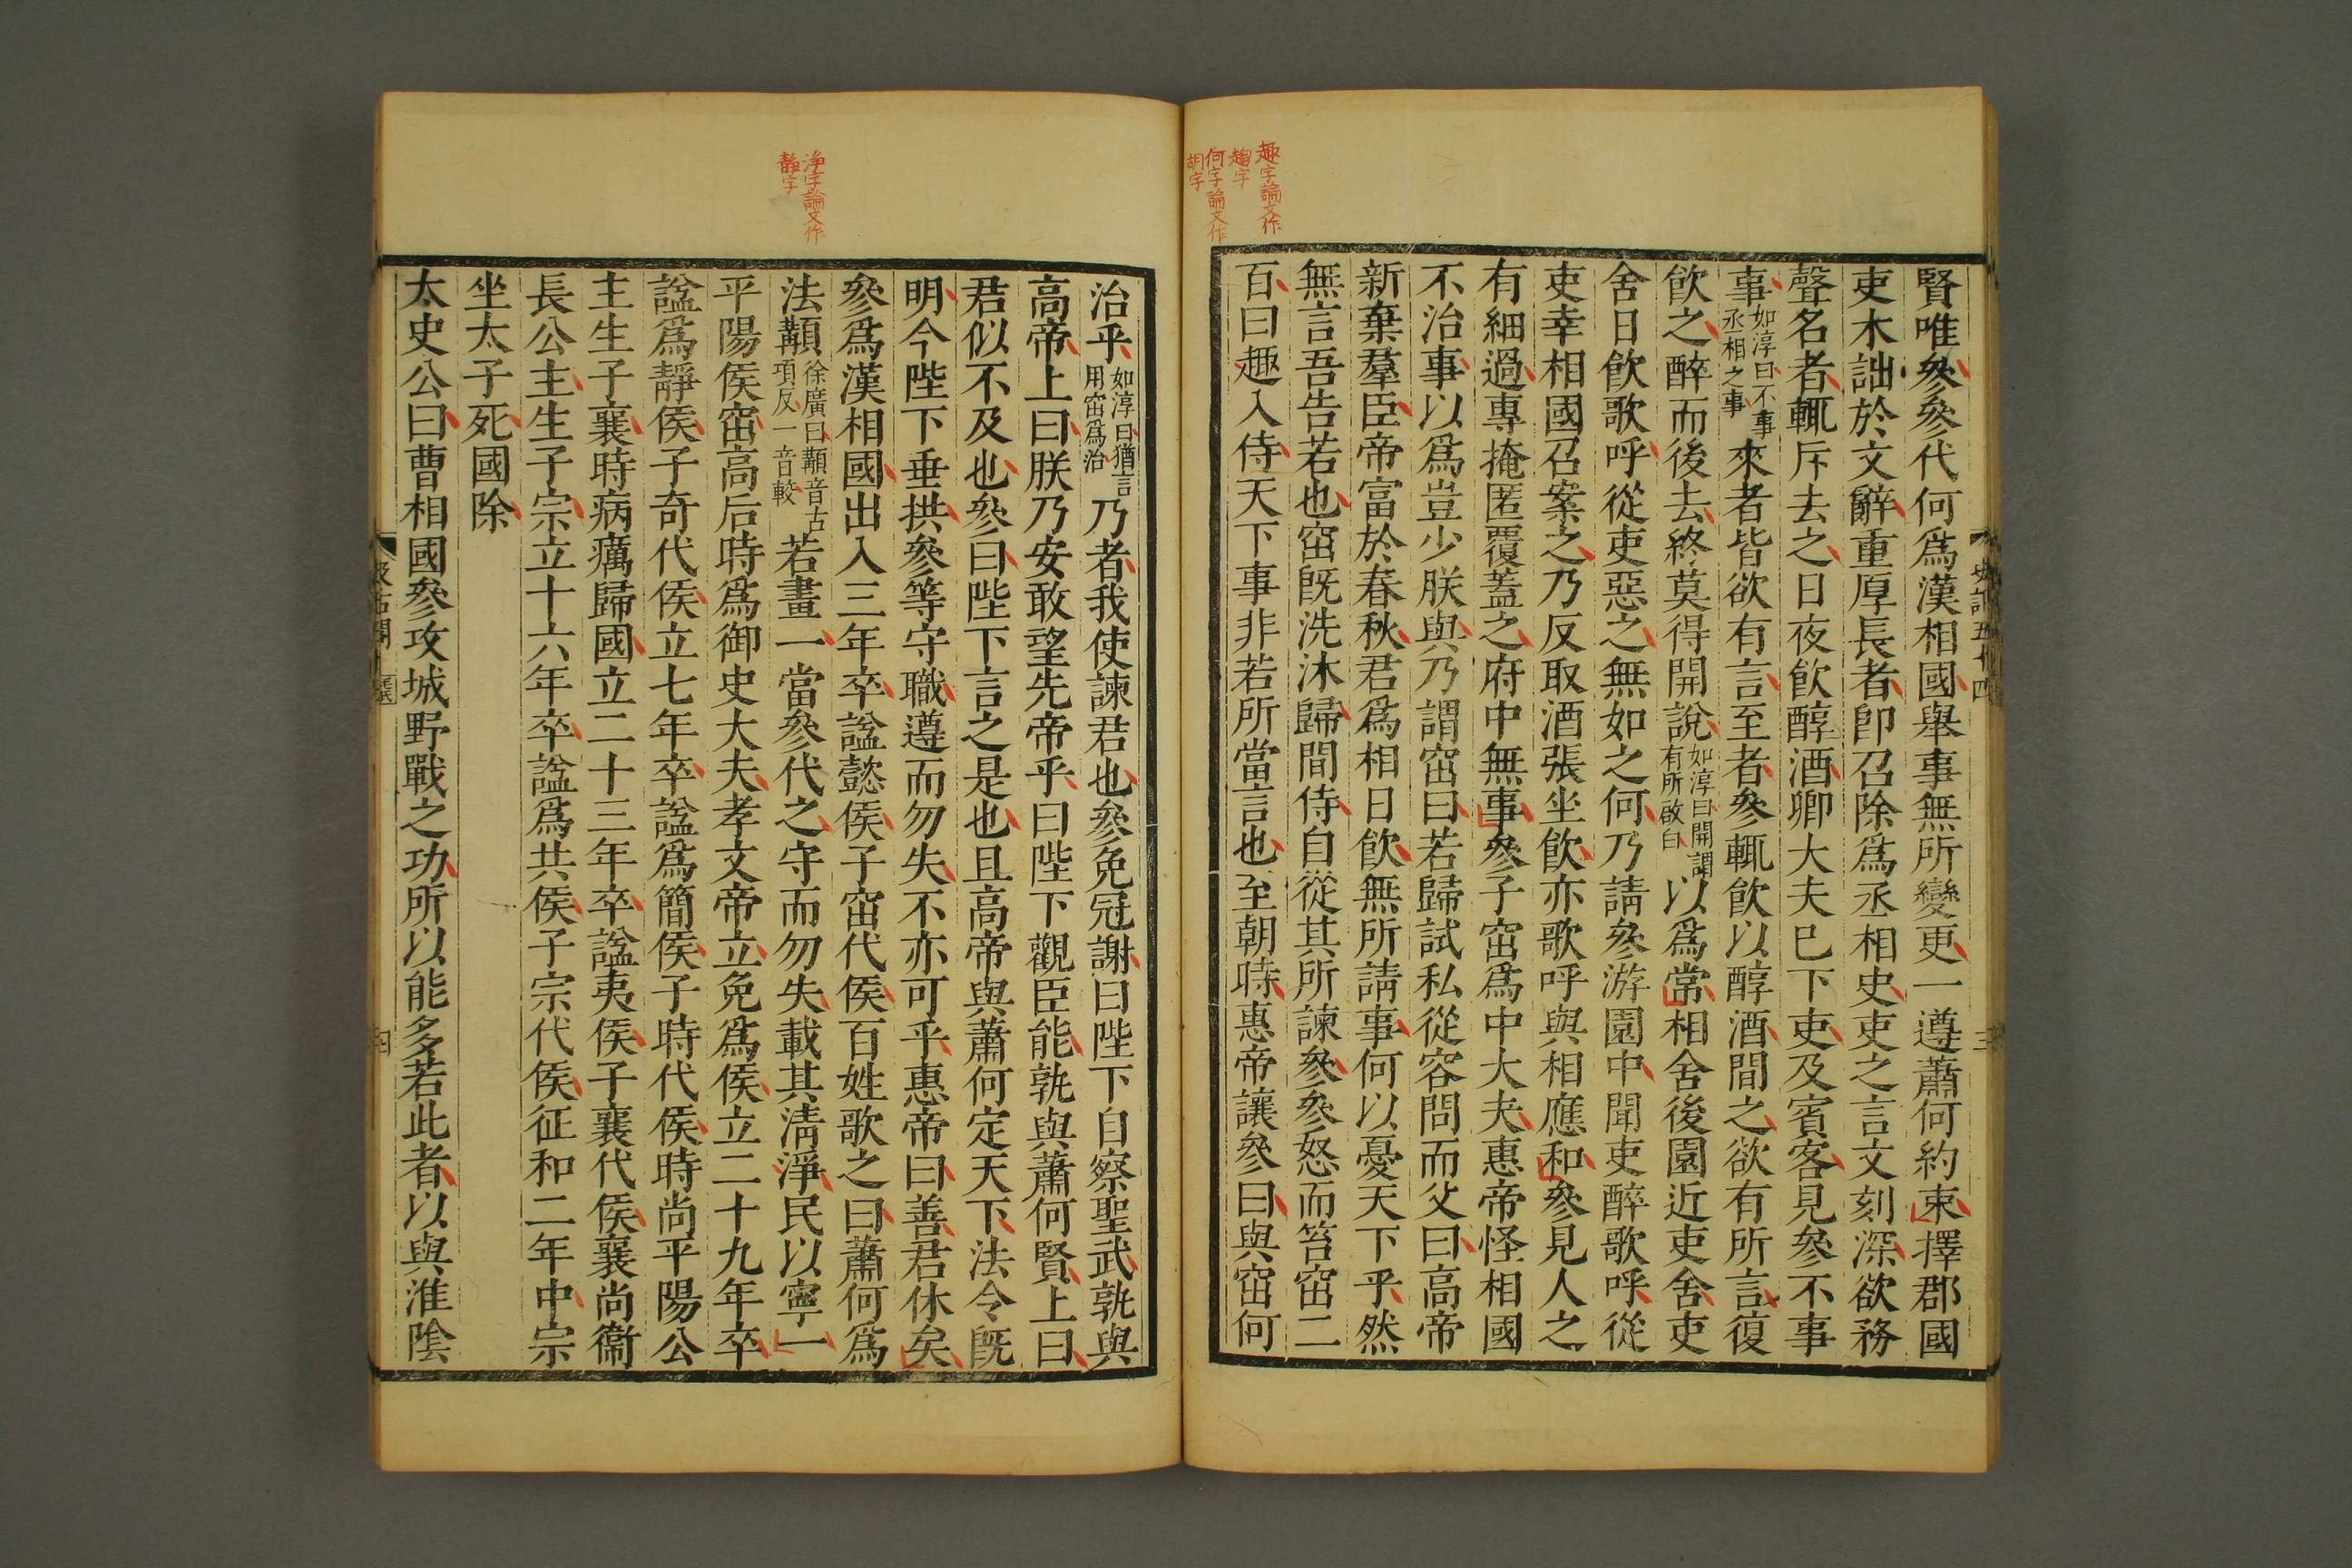 趣字論文作
趨字
何字論文作
胡字
史記五十四
三
賢唯參參代何爲漢相國舉事無所變更一遵蕭何約束擇郡國
吏木詘於文辭重厚長者卽召除爲丞相史吏之言文刻深欲務
聲名者輒斥去之日夜飮醇酒卿大夫巳下吏及賓客見參不事
事如淳曰不事丞相之事來者皆欲有言至者參輒飮以醇酒間之欲有所言復
飮之醉而後去終莫得開說如淳曰開謂有所啟白以爲常相舍後園近吏舍吏
舍日飮歌呼從吏惡之無如之何乃請參游園中聞吏醉歌呼從
吏幸相國召案之乃反取酒張坐飮亦歌呼與相應和參見人之
有細過專掩匿覆蓋之府中無事參子窋爲中大夫惠帝怪相國
不治事以爲豈少朕與乃謂窋曰若歸試私從容問而父曰高帝
新棄羣臣帝富於春秋君爲相日飮無所請事何以憂天下乎然
無言吾告若也窋旣洗沐歸間侍自從其所諫參參怒而笞窋二
百曰趣入侍天下事非若所當言也至朝時惠帝讓參曰與窋何
淨字論文作
靜字
治乎如淳曰猶言用窋爲治乃者我使諫君也參免冠謝曰陛下自察聖武孰與
高帝上曰朕乃安敢望先帝乎曰陛下觀臣能孰與蕭何賢上曰
君似不及也參曰陛下言之是也且高帝與蕭何定天下法令旣
明今陛下垂拱參等守職遵而勿失不亦可乎惠帝曰善君休矣
參爲漢相國出入三年卒諡懿侯子窋代侯百姓歌之曰蕭何爲
法顜徐廣曰顜音古項反一音較若畫一當參代之守而勿失載其淸淨民以寧一
平陽侯窋高后時爲御史大夫孝文帝立免爲侯立二十九年卒
諡爲靜侯子奇代侯立七年卒諡爲簡侯子時代侯時尚平陽公
主生子襄時病癘歸國立二十三年卒諡夷侯子襄代侯襄尚衞
長公主生子宗立十六年卒諡爲共侯子宗代侯征和二年中宗
坐太子死國除
太史公曰曹相國參攻城野戰之功所以能多若此者以與淮陰
汲古閣
四